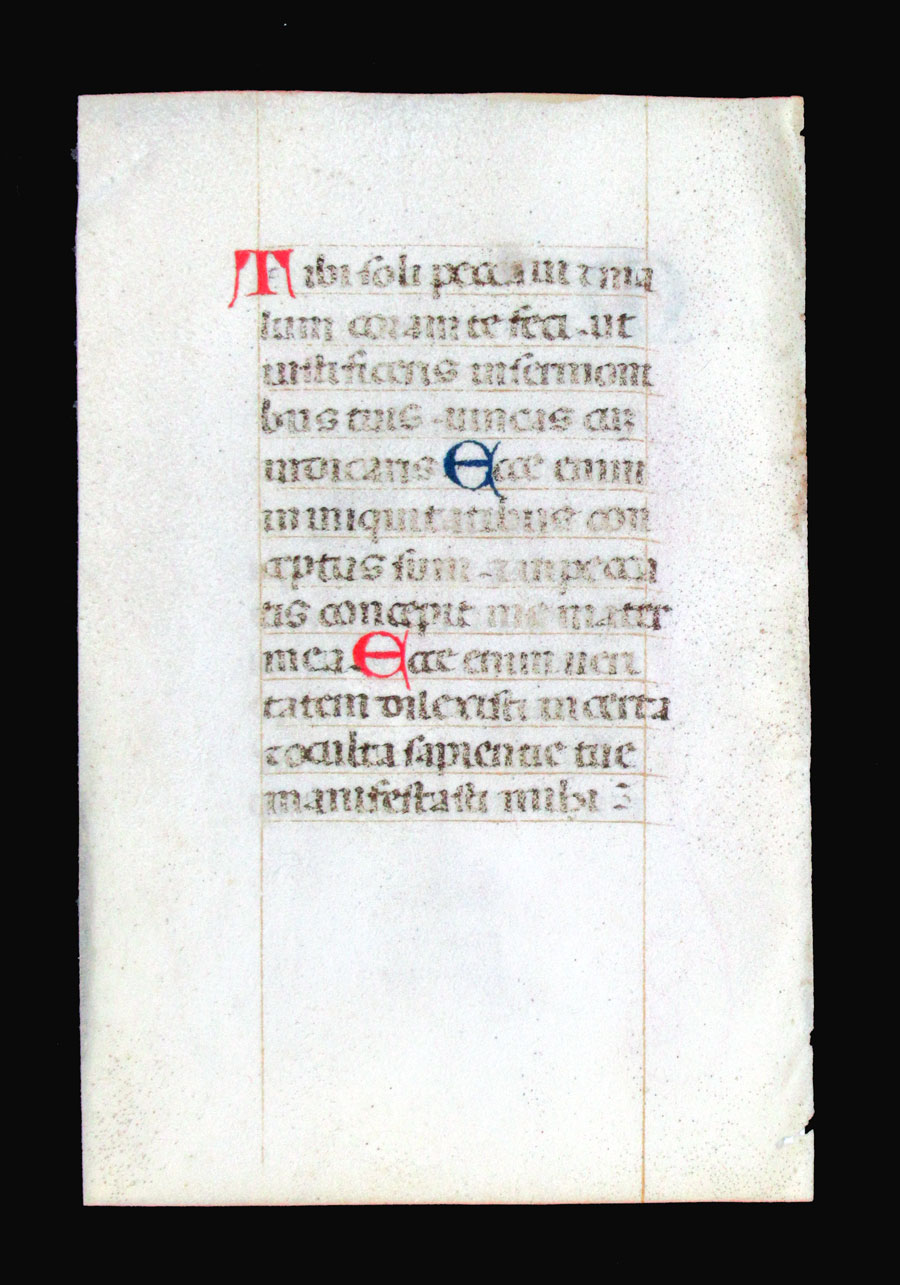 Tibi soli peccaui ⁊ ma
lum coram te feci · ut
iustificeris in sermoni
bus tuis · ⁊ uincas cuʒ
iudicaris Ecce enim
in iniquitatibus con
ceptus sum · ⁊ in pecca
tis concepit me mater
mea · Ecce enim ueri
tatem dilexisti incerta
⁊ occulta sapientie tue
manifestasti mihi